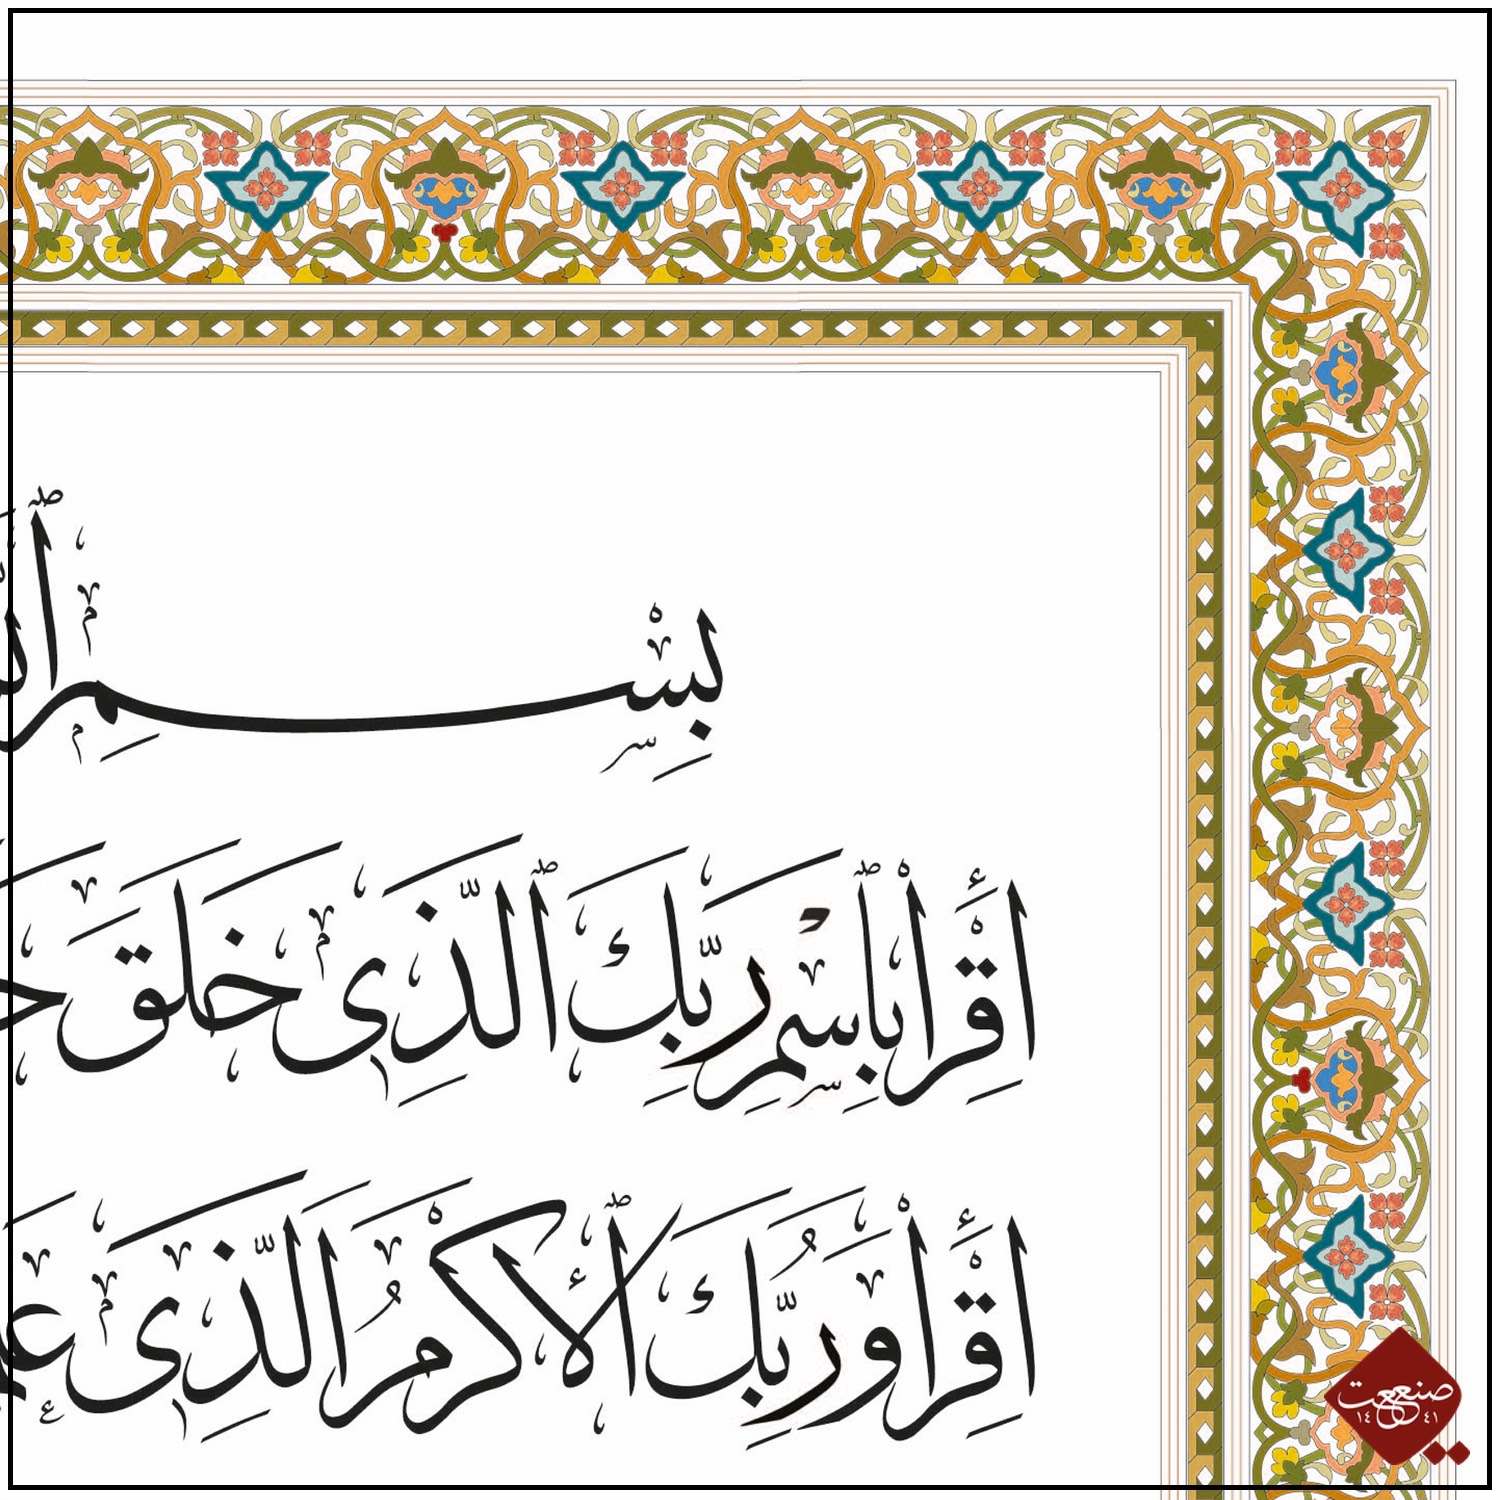 بِسْمِ
ٱقْرَأْ بِٱسْمِ رَبِّكَ ٱلَّذِى خَلَقَ
ٱقْرَأْ وَرَبُّكَ ٱلْأَكْرَمُ ٱلَّذِى
صنعت
١٤٤١